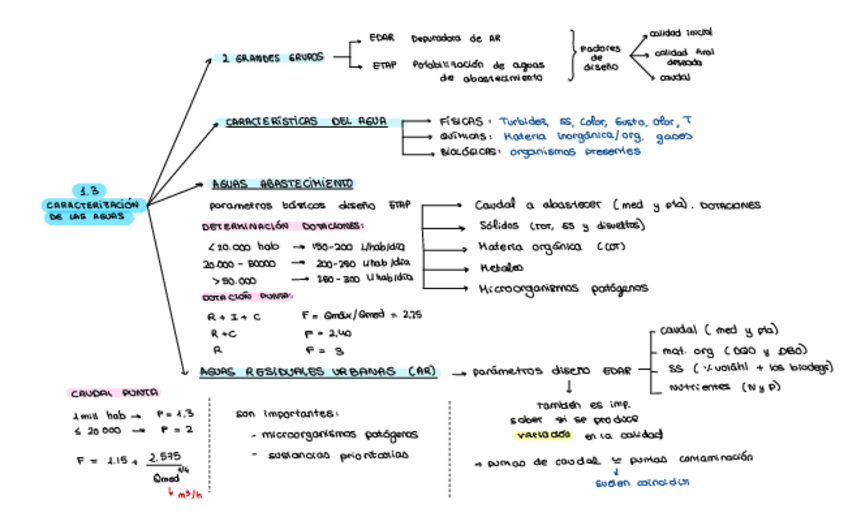 1.3
CARACTERIZACIÓN
DE LAS AGUAS
2 GRANDES GRUPOS
EDAR Depuradora de AR
ETAP Potabilización de aguas
de abastecimiento
Factores
de
diseño
calidad inicial
calidad final
deseada
caudal
CARACTERÍSTICAS DEL AGUA
FÍSICAS: Turbidez, SS, Color, Gusto, Olor, T
QUÍMICAS: Materia inorgánica/org, gases
BIOLÓGICAS: organismos presentes
AGUAS ABASTECIMIENTO
parametros básicos diseño ETAP
Caudal a abastecer (med y pta). DOTACIONES
Sólidos (TOT, SS y disueltos)
Materia orgánica (COT)
Metales
Microorganismos patógenos
DETERMINACIÓN DOTACIONES:
<20.000 hab → 150-200 L/hab/día
20.000 - 50000 → 200-250 L/hab/día
>50.000 → 250-300 L/hab/día
DOTACIÓN PUNTA:
R + I + C F = Qmáx/Qmed = 2,25
R+C F = 2,40
R F = 3
AGUAS RESIDUALES URBANAS (AR)
→ parámetros diseño EDAR
caudal (med y pta)
mat. org (DQO y DBO)
SS (% volátil + los biodegr)
Nutrientes (N y P)
También es imp.
saber si se produce
variación en la calidad
→ puntas de caudal ≈ puntas contaminación
suelen coincidir
CAUDAL PUNTA
1 mill hab → F = 1,3
≤ 20 000 → F = 2
F = 1.15 + 2.575
Qmed^1/4
m3/h
son importantes:
- microorganismos patógenos
- sustancias prioritarias